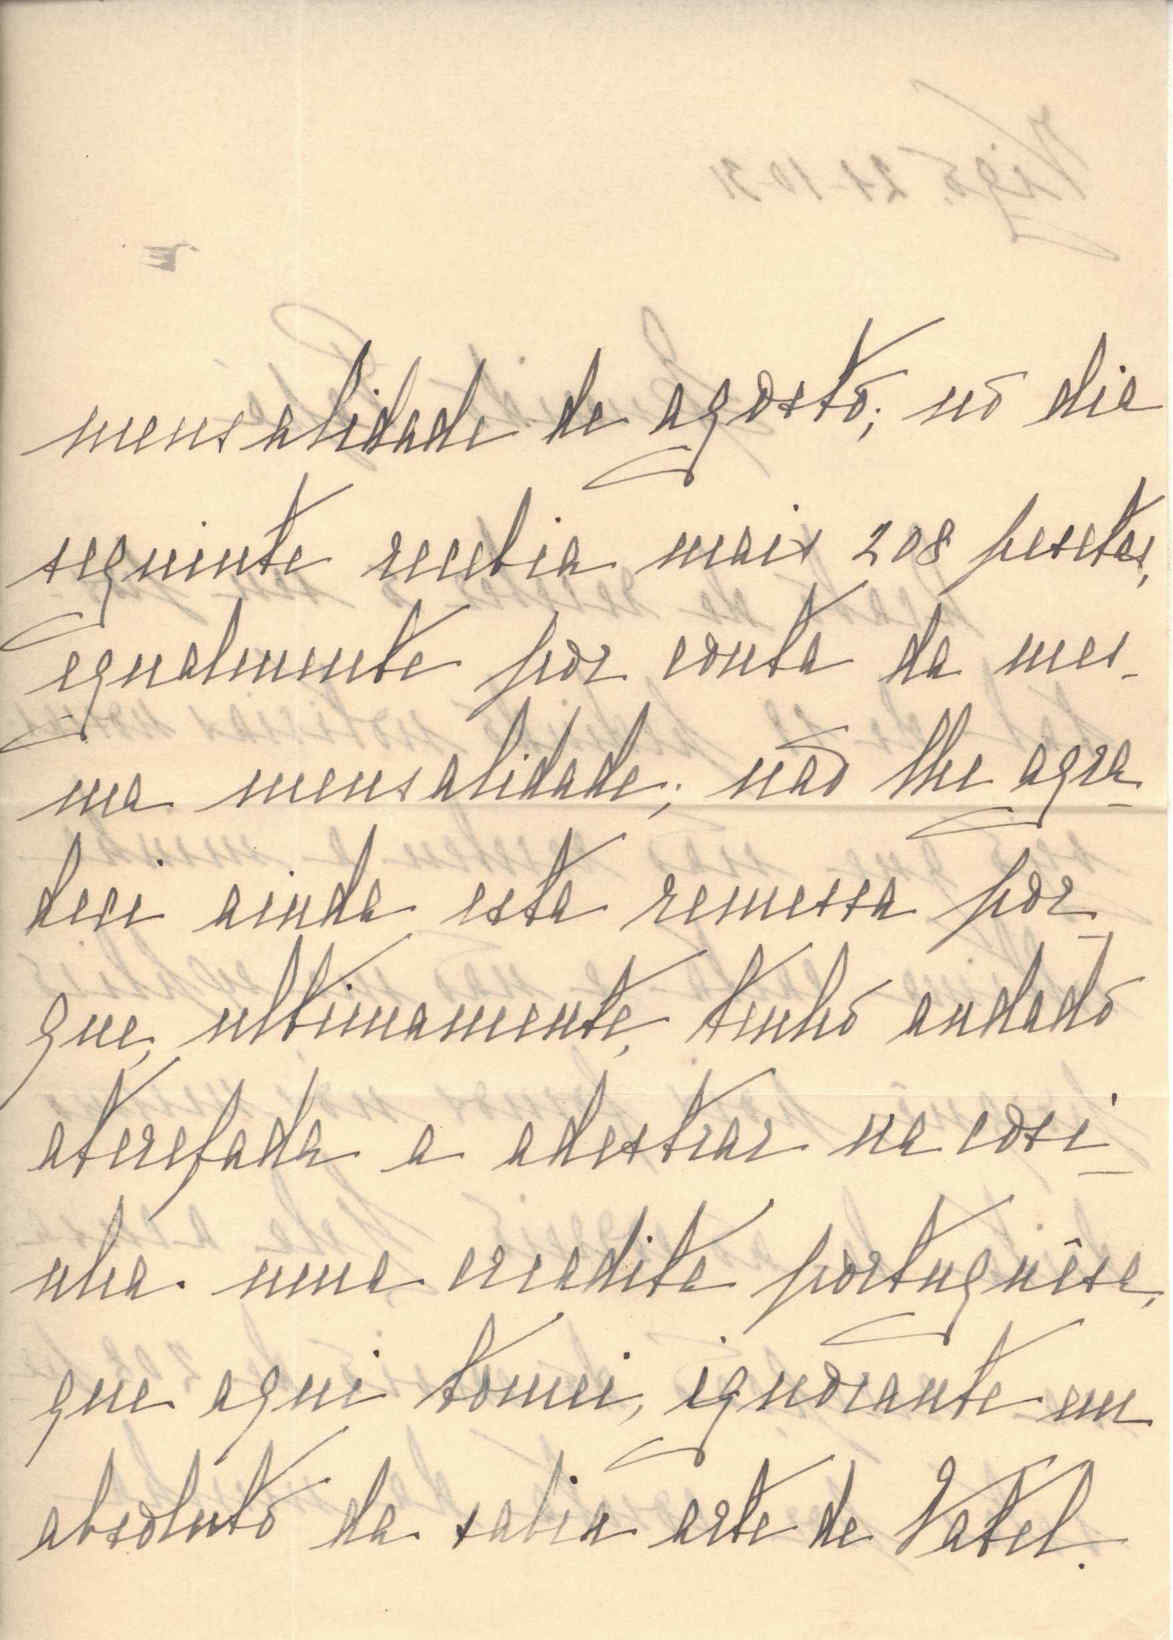 mensalidade de agosto; no dia
seguinte recebia mais 208 pesetas,
egualmente por conta da mes-
ma mensalidade; não lhe agra-
deci ainda esta remessa por-
que, ultimamente, tenho andado
aterefada a adestrar na cosi-
nha uma creadita portuguêsa,
que aqui tomei, ignorante em
absoluto da sabia arte de Vatel.